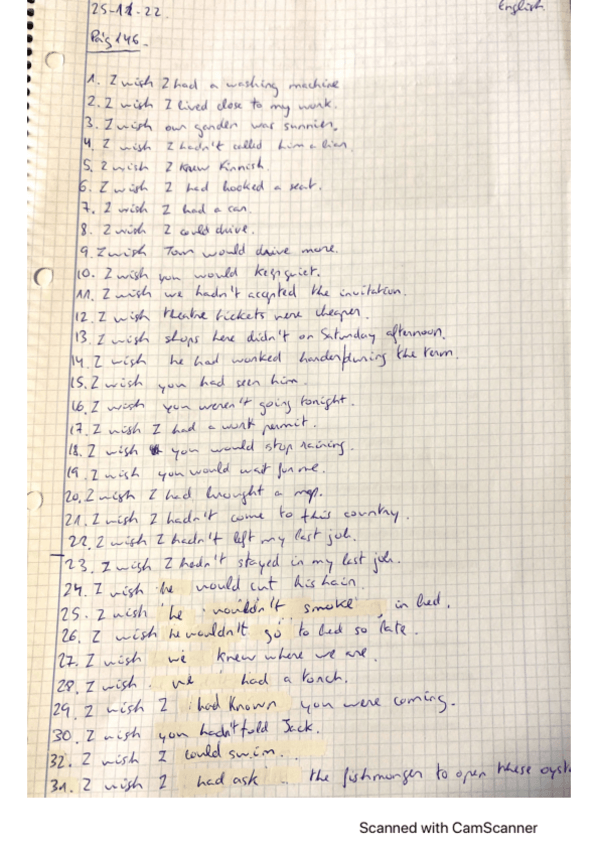 25-11-22.
English
Pág 146.
1. I wish I had a washing machine
2. I wish I lived close to my work.
3. I wish our garden was sunnier.
4. I wish I hadn't called him a liar.
5. I wish I knew Finnish.
6. I wish I had booked a seat.
7. I wish I had a car.
8. I wish I could drive.
9. I wish Tom would drive more.
10. I wish you would keep quiet.
11. I wish we hadn't accepted the invitation.
12. I wish theatre tickets were cheaper.
13. I wish shops here didn't on Saturday afternoon.
14. I wish he had worked harder during the term.
15. I wish you had seen him.
16. I wish you weren't going tonight.
17. I wish I had a work permit.
18. I wish you would stop raining.
19. I wish you would wait for me.
20. I wish I had brought a map.
21. I wish I hadn't come to this country.
22. I wish I hadn't left my last job.
23. I wish I hadn't stayed in my last job.
24. I wish he would cut his hair.
25. I wish he wouldn't smoke in bed.
26. I wish he wouldn't go to bed so late.
27. I wish we knew where we are.
28. I wish we had a torch.
29. I wish I had known you were coming.
30. I wish you hadn't told Jack.
32. I wish I could swim.
31. I wish I had ask the fishmonger to open these
Scanned with CamScanner